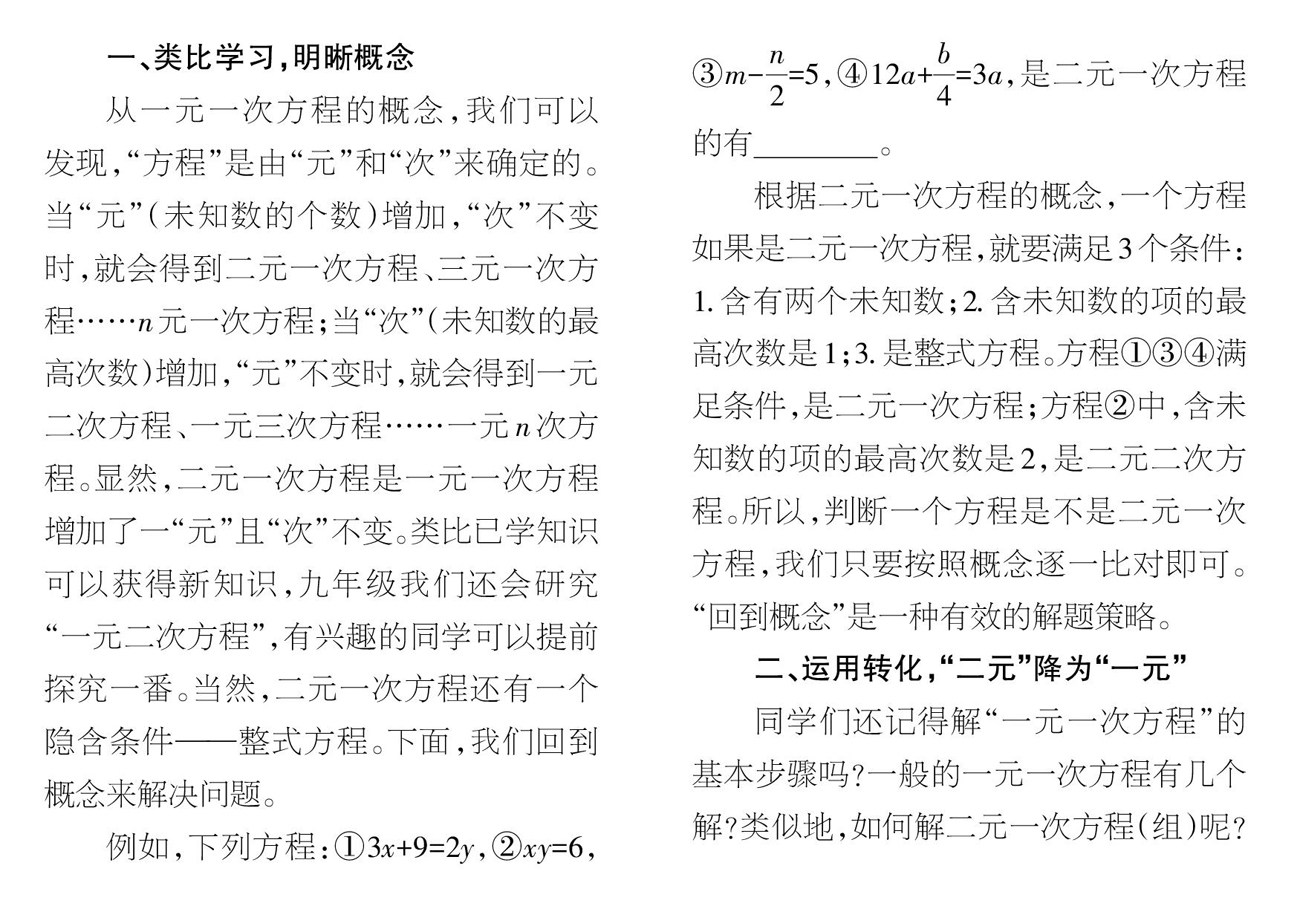 一、类比学习,明晰概念
从一元一次方程的概念,我们可以
发现,“方程”是由“元”和“次”来确定的。
当“元”(未知数的个数)增加,“次”不变
时,就会得到二元一次方程、三元一次方
程……n元一次方程;当“次”(未知数的最
高次数)增加,“元”不变时,就会得到一元
二次方程、一元三次方程……一元n次方
程。显然,二元一次方程是一元一次方程
增加了一“元”且“次”不变。类比已学知识
可以获得新知识,九年级我们还会研究
“一元二次方程”,有兴趣的同学可以提前
探究一番。当然,二元一次方程还有一个
隐含条件——整式方程。下面,我们回到
概念来解决问题。
例如,下列方程:①3x+9=2y,②xy=6,
③m-n/2=5,④12a+b/4=3a,是二元一次方程
的有________。
根据二元一次方程的概念,一个方程
如果是二元一次方程,就要满足3个条件:
1.含有两个未知数;2.含未知数的项的最
高次数是1;3.是整式方程。方程①③④满
足条件,是二元一次方程;方程②中,含未
知数的项的最高次数是2,是二元二次方
程。所以,判断一个方程是不是二元一次
方程,我们只要按照概念逐一比对即可。
“回到概念”是一种有效的解题策略。
二、运用转化,“二元”降为“一元”
同学们还记得解“一元一次方程”的
基本步骤吗?一般的一元一次方程有几个
解?类似地,如何解二元一次方程(组)呢?